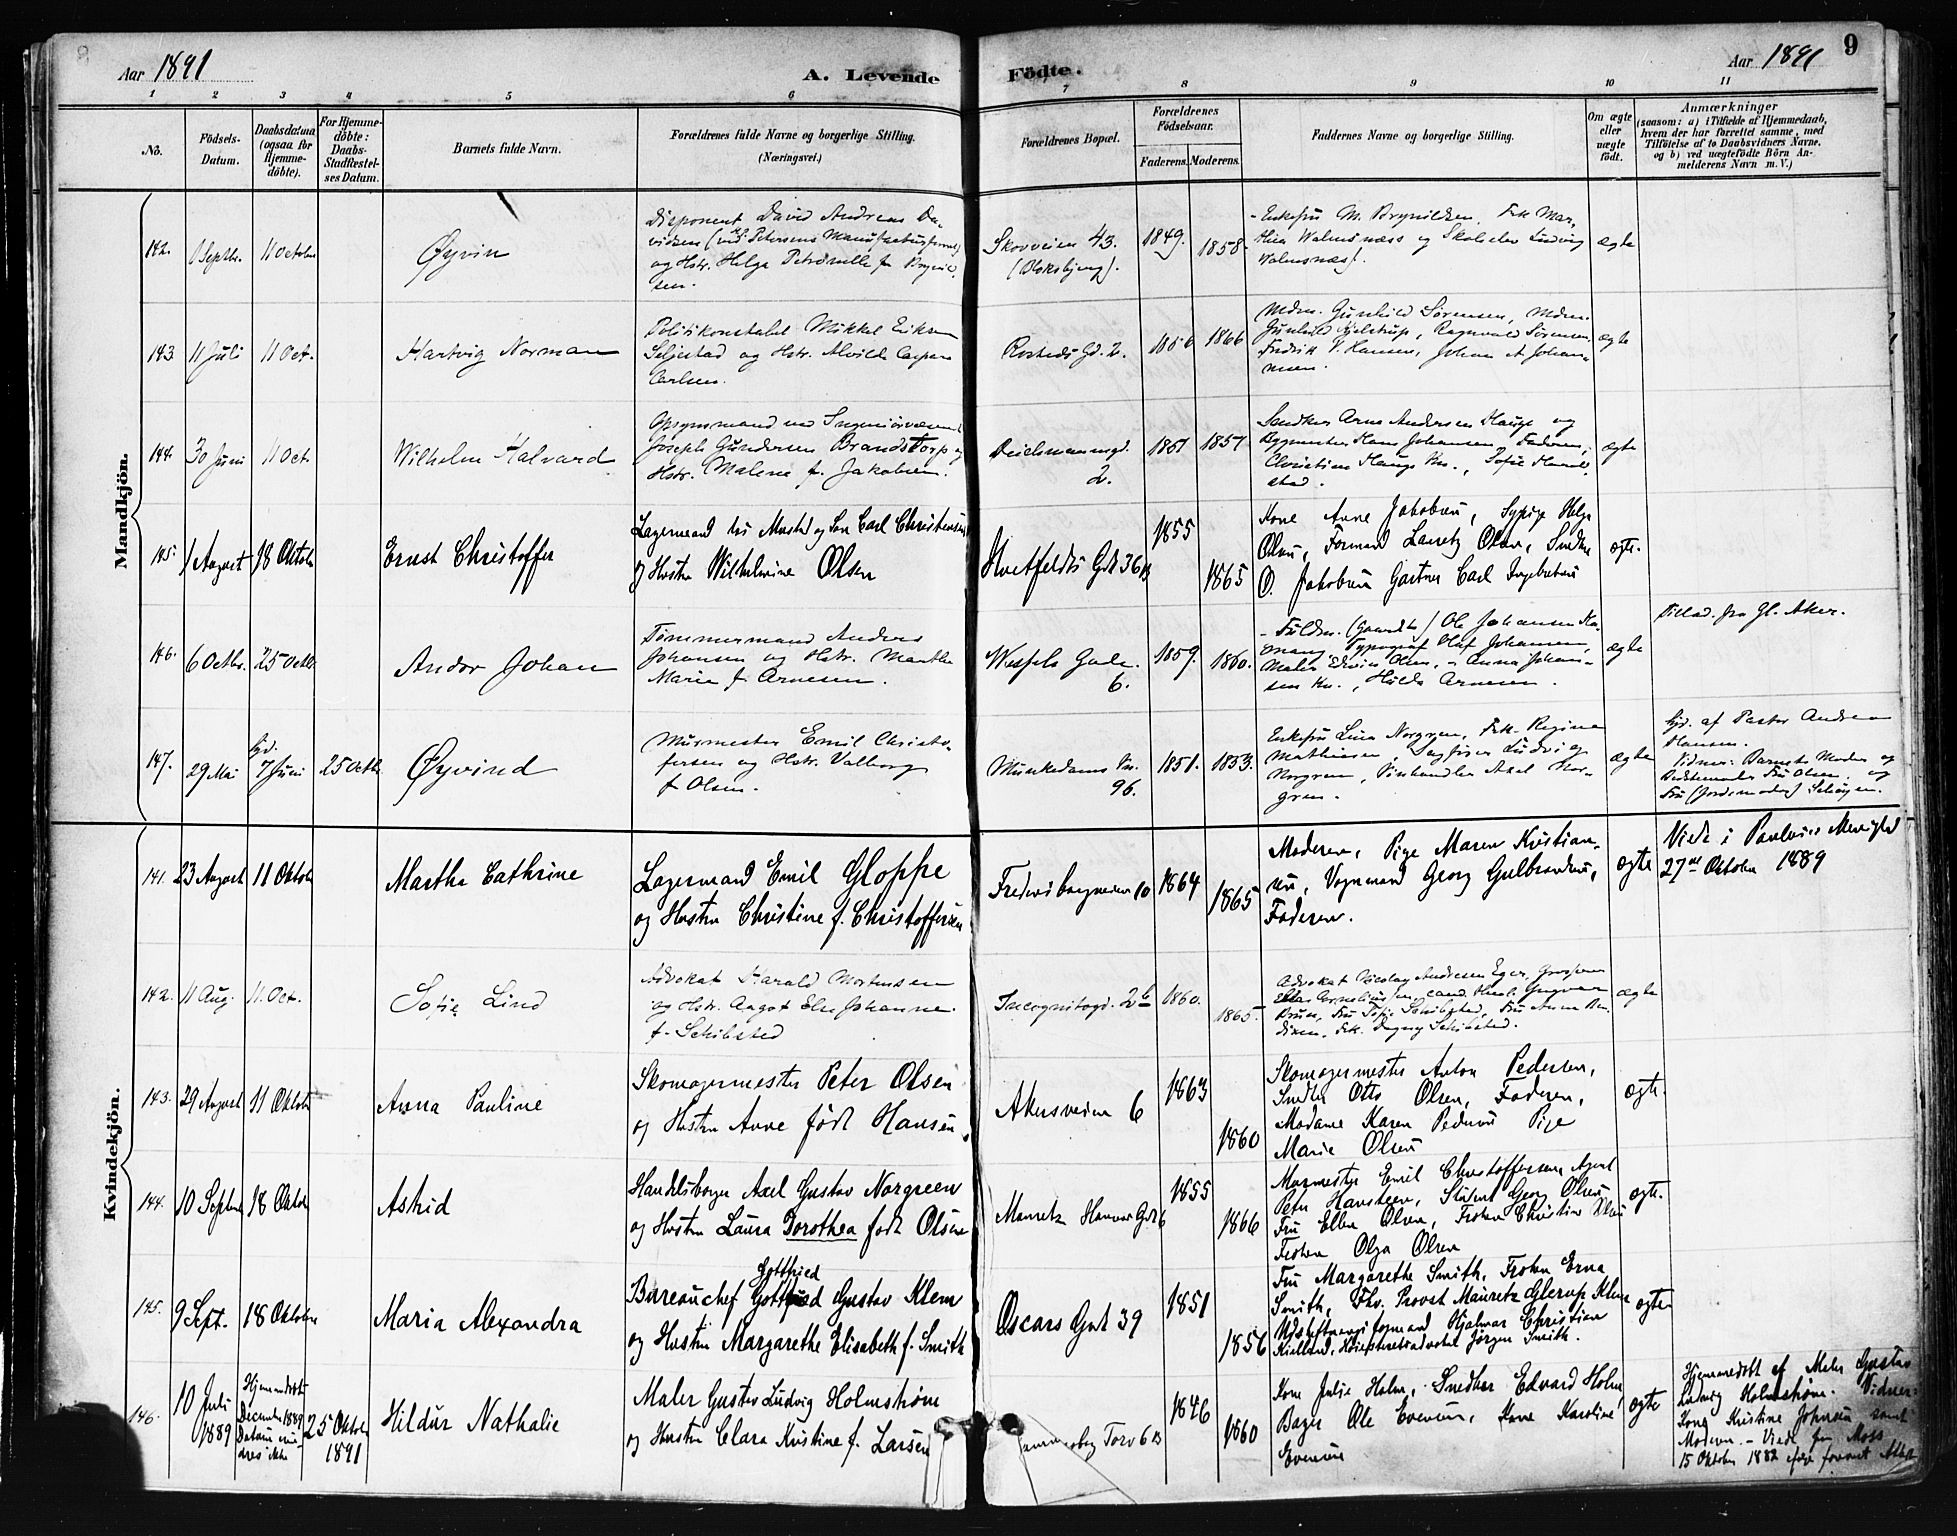 Aar 1891
A. Levende
Födte.
Aar 1891
9
1 2 3 4 5 6 7 8 9 10 11
No.
Födsels-
Datum.
Daabsdatum
(ogsaa for
Hjemme-
döbte).
For Hjemme-
döbte:
Daabs-
Stadfæstel-
ses Datum.
Barnets fulde Navn.
Forældrenes fulde Navne og borgerlige Stilling.
(Næringsvei.)
Forældrenes Bopæl.
Forældrenes
Födselsaar.
Faderens. Moderens.
Faddernes Navne og borgerlige Stilling.
Om ægte
eller
uægte
födt.
Anmærkninger
(saasom: a) i Tilfælde af Hjemmedaab,
hvem der har forrettet samme, med
Tilföielse af to Daabsvidners Navne,
og b) ved uægtefödte Börn An-
melderens Navn m. V.)
Mandkjön.
142.
11 October
Øyvin
Disponent David Andreas Da-
vidsen
og Hstr. Helga Petronelle f.
sen.
Skovveien 43.
1849.
1858.
Enkefru M. Brynildsen, Frk. Mar-
ægte
143
11 Juli
11 Oct.
Hartvig Norman
Politikonstabel Mikkel Eriksen
Seljestad og Hstr. Alvilde Caspara
Carlsen.
Rosteds Gd. 2.
1856
1866
Mdm. Gunhild Sørensen, Mdm.
Gunhild Hjelstrup, Ragnvald Sørensen,
Fredrik P. Hansen, Johan A Johan-
nesen.
ægte
144.
30 Juni
11 Oct.
Wilhelm Halvard
Opsynsmand ved Ingeniørvæsenet
Joseph Gundersen Brandstorp og
Hstr. Malene f. Jakobsen.
Deichmannsgd.
2.
1851
1857
Snedker Arne Andersen Hauge og
Bygmester Hans Johansen, Faderen,
Christine Hauge Kn., Sofie
stad.
ægte
145.
1 August
18 Oktober
Ernst Christoffer
Lagermand hos Mustad og Søn Carl Christensen
og Hustru Wilhelmine Olsen
Huitfeldts Gde 36 B
1855
1865
Kone Anne Jakobsen, Sypige Helga
Olsen, Formand Lauritz Olsen, Snedker
O. Jakobsen Gartner Carl Ingebretsen
ægte.
146.
6 Octbr.
25 Octbr.
Andor Johan
Tømmermand Anders
Johansen og Hstr. Marthe
Marie f. Arnesen.
Wessels Gade.
6.
1859.
1860.
Ole Johansen
Typograf Olaf Johansen,
Maler Edvin Olsen, Anna Johan-
sen Kn., Hilda Arnesen.
ægte
Tillad. fra Gl. Aker.
147.
29 Mai
Hjd.
7 Juni
25 Octbr.
Øyvind
Murmester Emil Christo-
fersen og Hstr. Valborg
f. Olsen.
Munkedams Vn.
96.
1851.
1853.
Enkefru Lina Norgren, Frk. Regina
Mathiesen, Ludvig
Norgren, Vinhandler Axel Nor-
gren.
ægte
Hjd. af Pastor Andreas
Hansen.
Vidner: Barnets Moder og
Bedstemoder Fru Olsen, og
Fru (Jordemoder)
Kvindekjön.
141.
23 August
11 Oktober
Marthe Cathrine
Lagermand Emil Gloppe
og Hustru Christine f. Christoffersen
Frederiborgveien 10
1864
1865
Moderen, Pige Maren Kristian-
sen, Vognmand Georg Gulbrandsen,
Faderen.
ægte
Viede i Paulus Menighed
27de Oktober 1889
142.
11 Aug.
11. Oct.
Sofie Lind
Advokat Harald Mortensen
og Hstr. Aagot Else Johanne
f. Schibsted
Incognitogd. 2b
1860.
1865.
Advokat Nicolay Andresen Eger,
Bruun, Fru Sofie Schibsted, Fru Anna
Frk. Dagny Schibsted.
ægte
143.
29 August
11 Oktober
Anna Pauline
Skomagermester Peter Olsen
og Hustru Anne født Hansen.
Akersveien 6
1863
1860
Skomagermester Anton Pedersen,
Snedker Otto Olsen, Faderen,
Madame Karen Pedersen Pige
Marie Olsen
ægte.
144.
10 September
18 Oktober
Astrid
Handelsborger Axel Gustav Norgreen
og Hustru Laura Dorothea født Olsen
Mauritz Hansens Gde 6
1855
1866
Murmester Emil Christoffersen Agent
Peter Hansteen, Student Georg Olsen
Fru Ellen Olsen, Frøken Christine Olsen
Frøken Olga Olsen
ægte.
145.
9 Sept.
18 Oktober
Maria Alexandra
Gottfried
Bureauchef Gottfried Gustav Klem
og Hustru Margarethe Elisabeth f. Smith
Oscars Gade 39
1851
1856
Fru Margarethe Smith, Frøken Erna
Smith, Fhv. Provst Mauritz Glerup Klem
Hjalmar Christian
Kielland, Høiesteretsadvokat Jørgen Smith.
ægte
146.
10 Juli
1889
Hjemmedøbt
December 1889
Datum erin-
dres ikke
25 Oktober
1891
Hildur Nathalie
Maler Gustav Ludvig Holmstrøm
og Hustru Clara Kristine f. Larsen
Torv 6 B
1846
1860
Kone Julie Holm, Snedker Edvard Holm
Bager Ole Evensen, Kone Karoline
Evensen
ægte
Hjemmedøbt af Maler Gustav
Ludvig Holmstrøm. Vidner:
Kone Kristine Johnsen samt
Moderen. – Viede fra Moss
15 Oktober 1882 ifølge forevist Attest